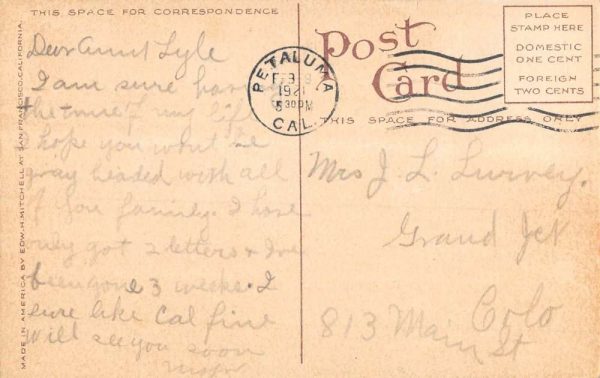 THIS SPACE FOR CORRESPONDENCE
Dear Aunt Lyle
I am sure having
the time of my life
hope you wont be
gray headed with all
of you family. I have
only got 2 letters & I've
been gone 3 weeks. I
sure like Cal fine
will see you soon
MADE IN AMERICA BY EDW. H. MITCHELL AT SAN FRANCISCO, CALIFORNIA.
PETALUMA
FEB 8
192
530PM
CAL.
Post
Card
THIS SPACE FOR ADDRESS ONLY
PLACE
STAMP HERE
DOMESTIC
ONE CENT
FOREIGN
TWO CENTS
Mrs J. L. Lurvey.
Grand Jct
Colo
813 Main St